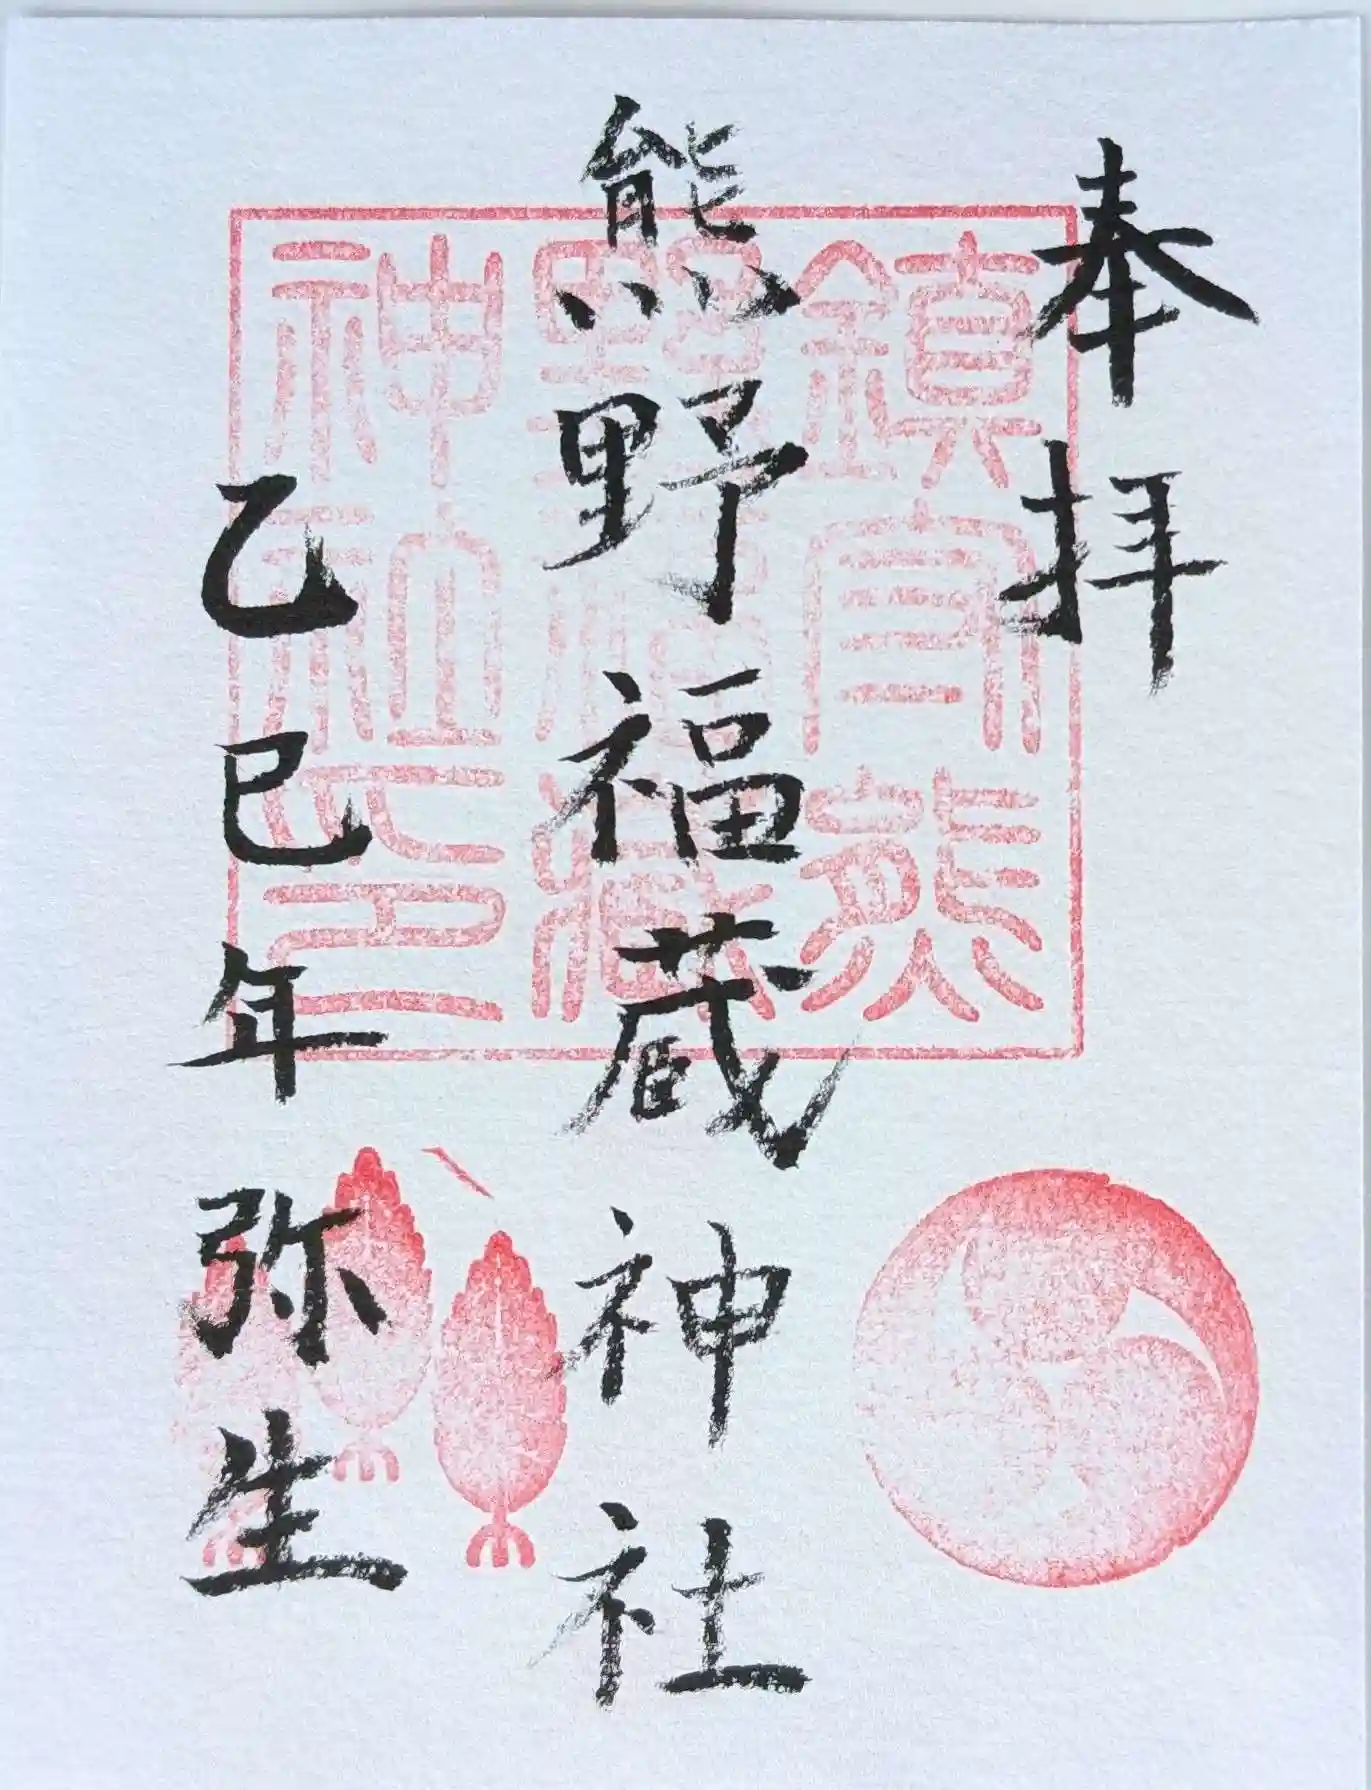 奉拝
熊野福蔵神社
乙巳年弥生
鎮守熊
野福蔵
神社之印